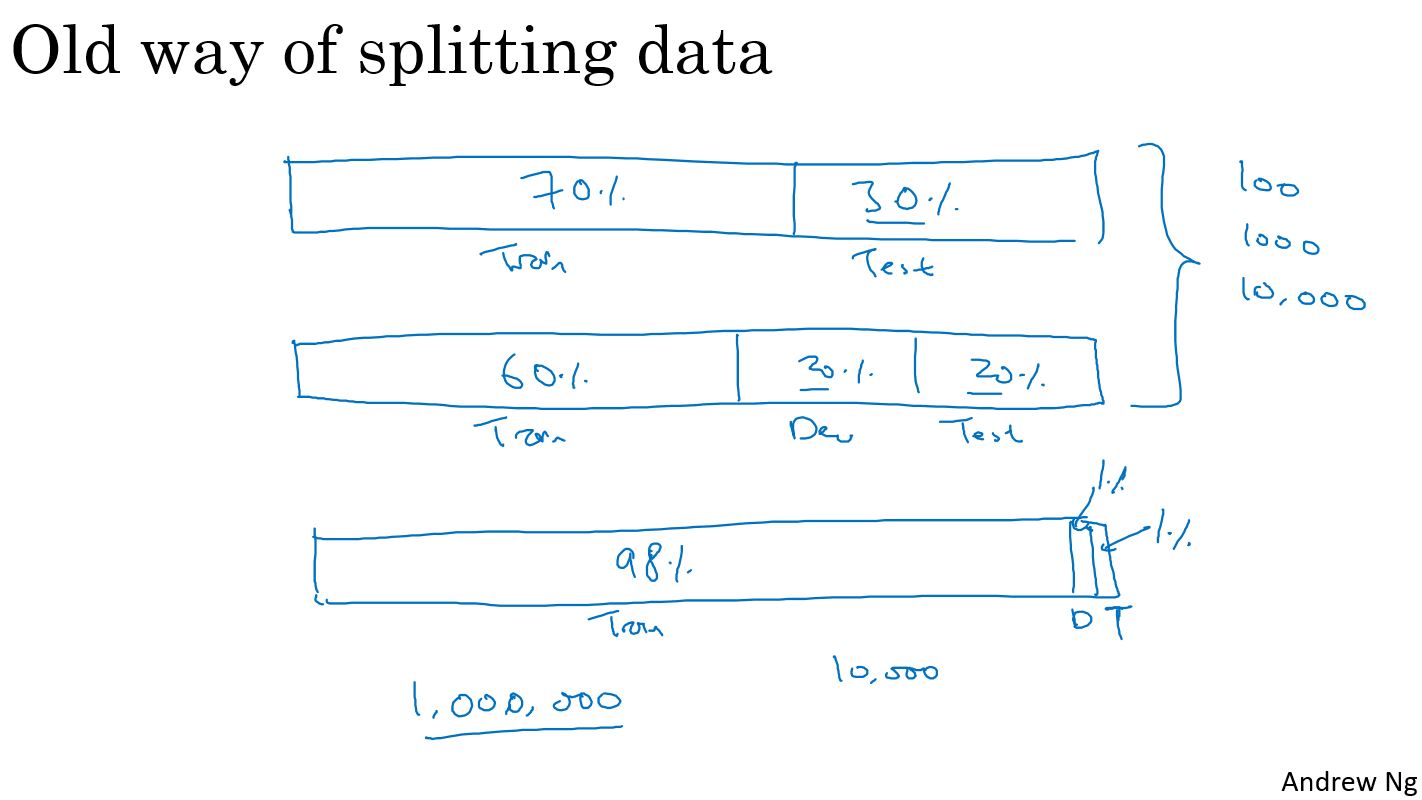 Old way of splitting data
70% 30% 100
Train Test 1000
10,000
60% 20% 20%
Train Dev Test
1%
98% 1%
Train D T
10,000
1,000,000
Andrew Ng